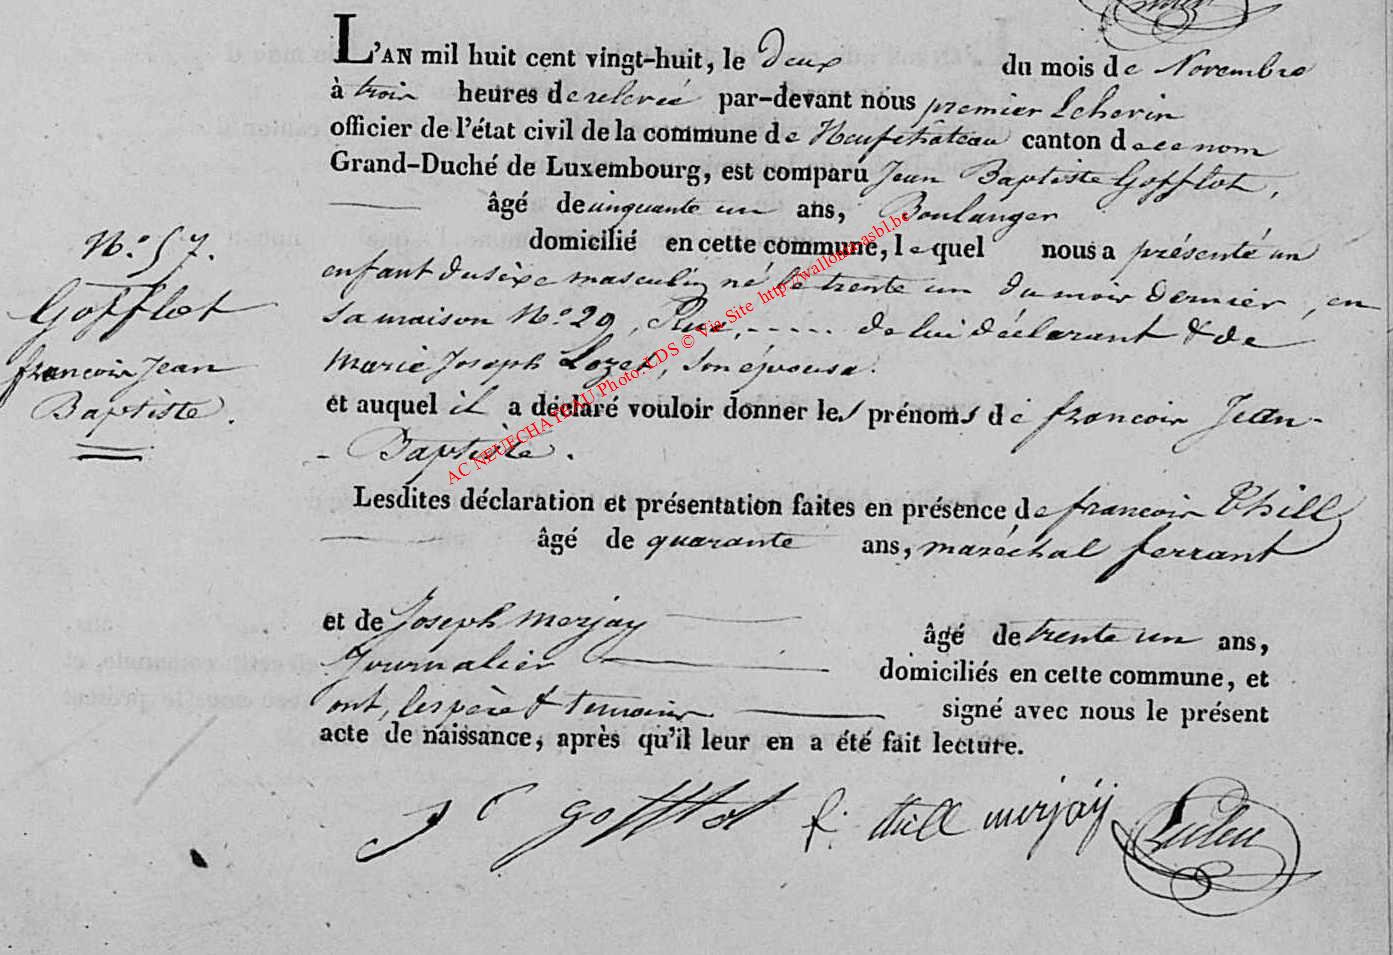 L'AN mil huit cent vingt-huit, le deux du mois de Novembre
à trois heures de relevée par-devant nous premier Echevin
officier de l'état civil de la commune de Neufchâteau canton de ce nom
Grand-Duché de Luxembourg, est comparu Jean Baptiste Gofflot,
âgé de cinquante un ans, Boulanger
domicilié en cette commune, lequel nous a présenté un
enfant du sexe masculin né le trente un du mois dernier, en
sa maison N.o 29, Rue, ..... de lui déclarant & de
Marie Joseph Lozet, son épouse.
et auquel il a déclaré vouloir donner les prénoms de françois Jean-
- Baptiste.
Lesdites déclaration et présentation faites en présence de françois Thill
âgé de quarante ans, maréchal ferrant
et de Joseph merjay âgé de trente un ans,
Journalier domiciliés en cette commune, et
ont, les père & temoins signé avec nous le présent
acte de naissance, après qu'il leur en a été fait lecture.
N.o 57.
Gofflot
françois Jean
Baptiste.
gofflot f. thill merjaÿ
AC NEUFCHATEAU Photo:LDS © Via Site http://wallonia-asbl.be